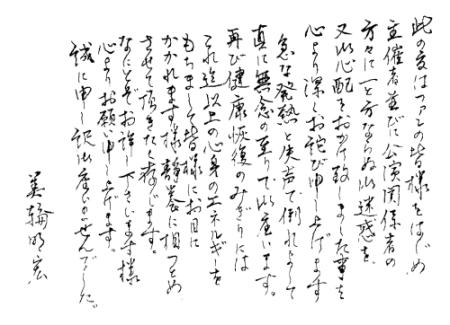 此の度はファンの皆様をはじめ
主催者並びに公演関係者の
方々に一と方ならぬ御迷惑を
又御心配をおかけ致しました事を
心より深くお詫び申し上げます
急な発熱と失声で倒れまして
真に無念の至りで御座います。
再び健康恢復のみぎりには
これ迄以上の心身のエネルギーを
もちまして皆様にお目に
かかれます様静養に相つとめ
させて頂きたく存じます。
なにとぞお許し下さいます様
心よりお願い申し上げます。
誠に申し訳御座いませんでした。
美輪明宏